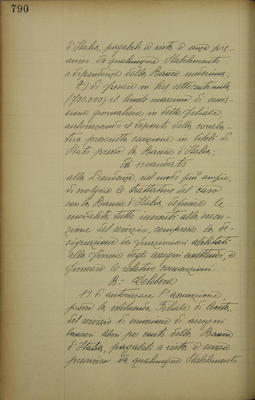 790
d'Italia, pagabili a vista o senza pre-
avviso da qualunque Stabilimento
o dipendenza della Banca medesima;
2) di fissare in lire settecentomila
(700.000) il limite massimo di emis-
sione giornaliera in detta filiale
autorizzando il deposito della correla-
tiva prescritta cauzione in titoli di
Stato presso la Banca d'Italia;
dà mandato
alla Presidenza, nel modo più ampio,
di svolgere le trattative del caso
con la Banca d'Italia, definire le
modalità tutte inerenti alla esecu-
zione del servizio, compresa la de-
signazione dei funzionari abilitati
alla firma degli assegni medesimi, e
firmare le relative convenzioni.
B - Delibera
1) di autorizzare l'assunzione
presso la
Filiale di
del servizio di emissione di assegni
bancari liberi per conto della Banca
d'Italia, pagabili a vista o senza
preavviso da qualunque Stabilimento